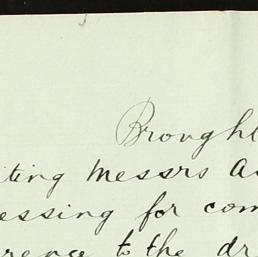 Brought
iting Messrs A
essing for com
rence to the dr